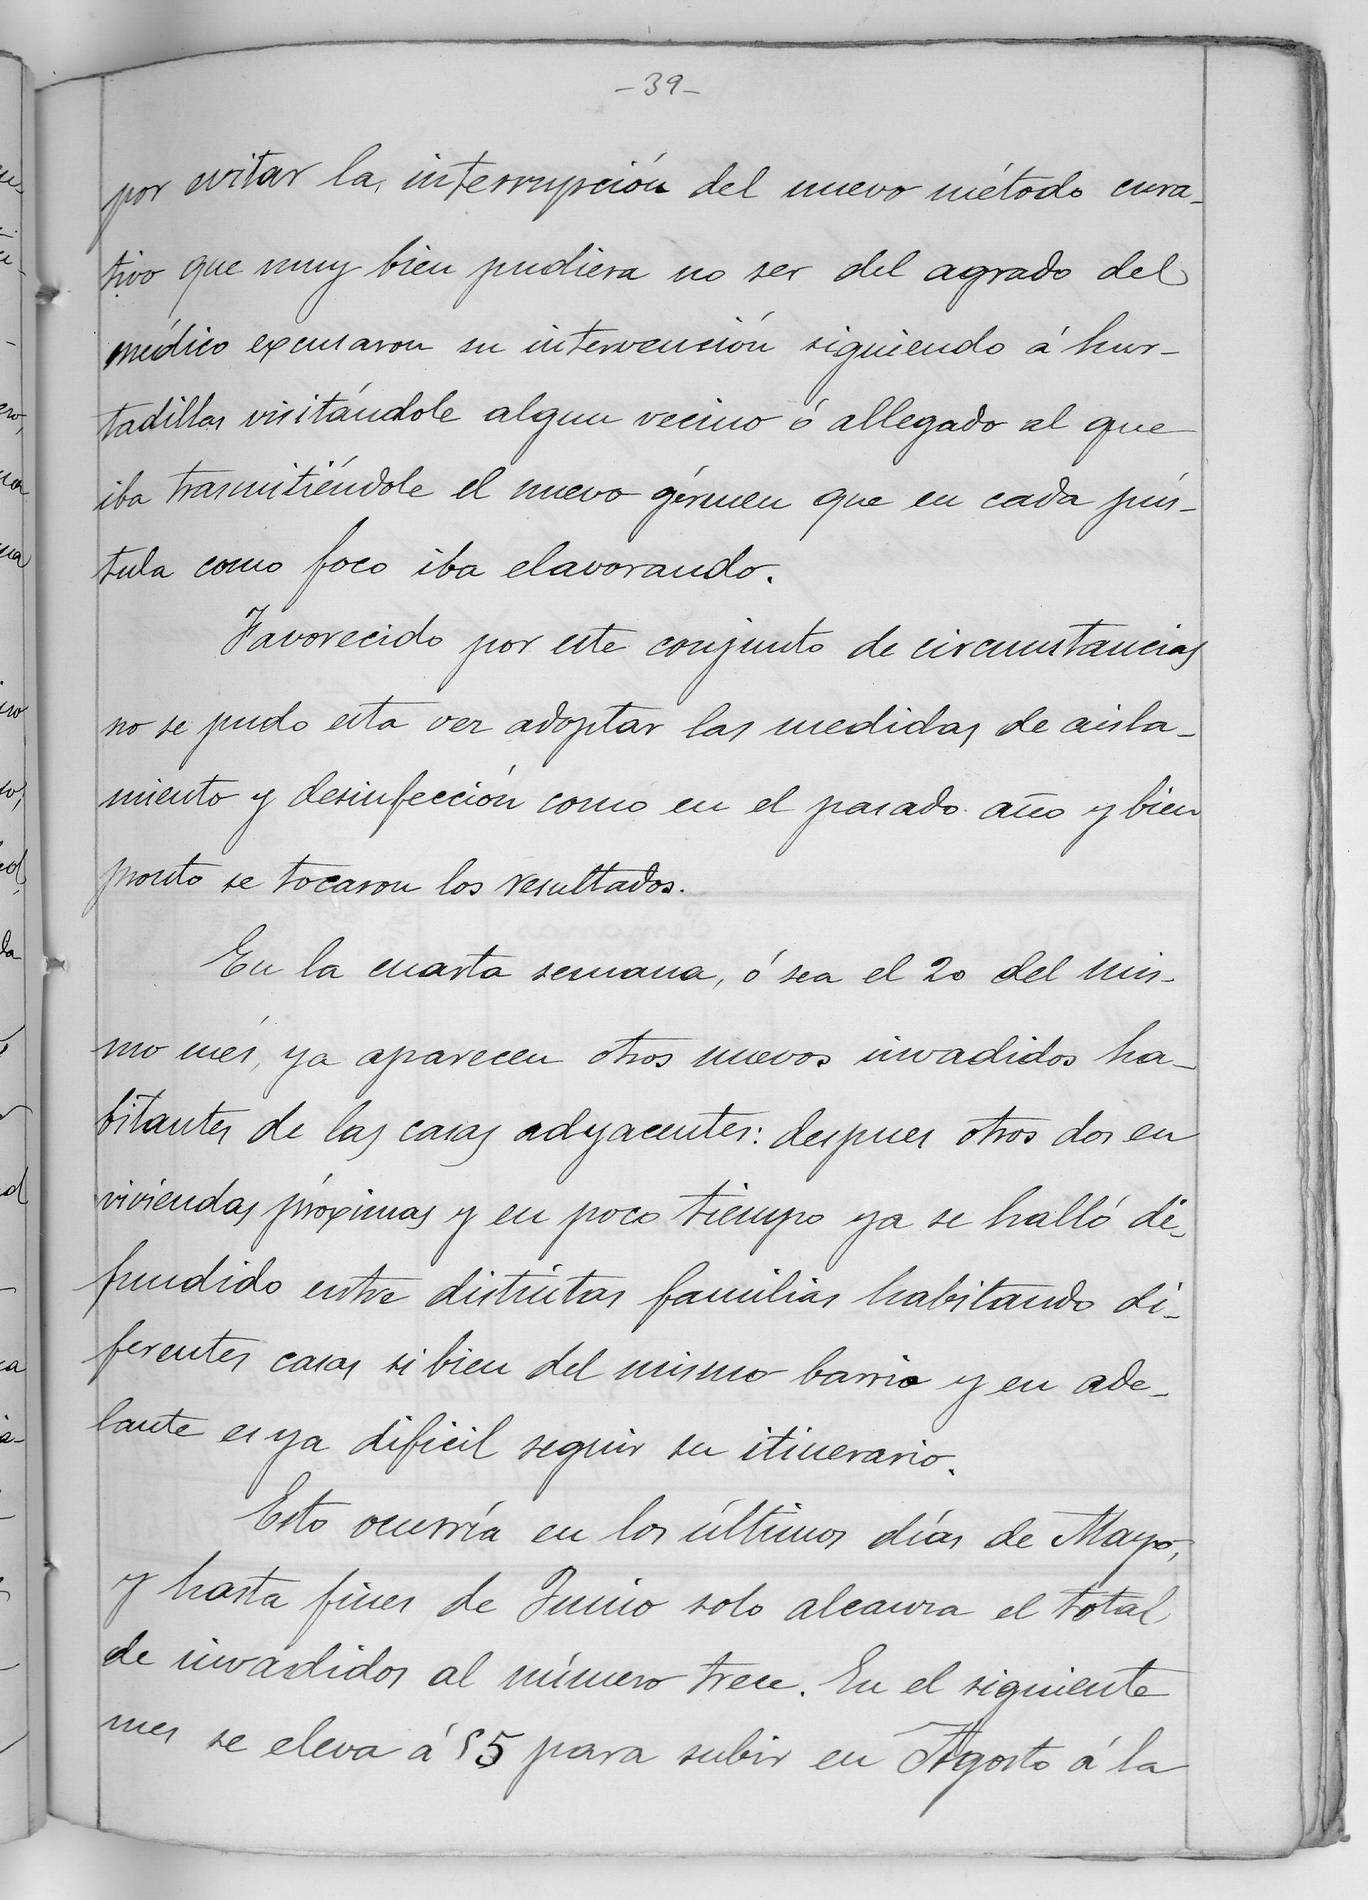 -39-
por evitar la, interrupción del nuevo método cura-
tivo que muy bien pudiera no ser del agrado del
médico excusaron su intervención siguiendo á hur-
tadillas visitándole algun vecino ó allegado al que
iba trasmitiéndole el nuevo gérmen que en cada pús-
tula como foco iba elavorando.
Favorecido por este conjunto de circunstancias
no se pudo esta vez adoptar las medidas de aisla-
miento y desinfección como en el pasado año y bien
pronto se tocaron los resultados.
En la cuarta semana, ó sea el 20 del mis-
mo més, ya aparecen otros nuevos invadidos ha-
bitantes de las casas adyacentes: despues otros dos en
viviendas próximas y en poco tiempo ya se halló di-
fundido entre distintas familias habitando di-
ferentes casas si bien del mismo barrio y en ade-
lante es ya dificil seguir su itinerario.
Esto ocurría en los últimos días de Mayo,
y hasta fines de Junio solo alcanza el total
de invadidos al número trece. En el siguiente
mes se eleva á 55 para subir en Agosto á la